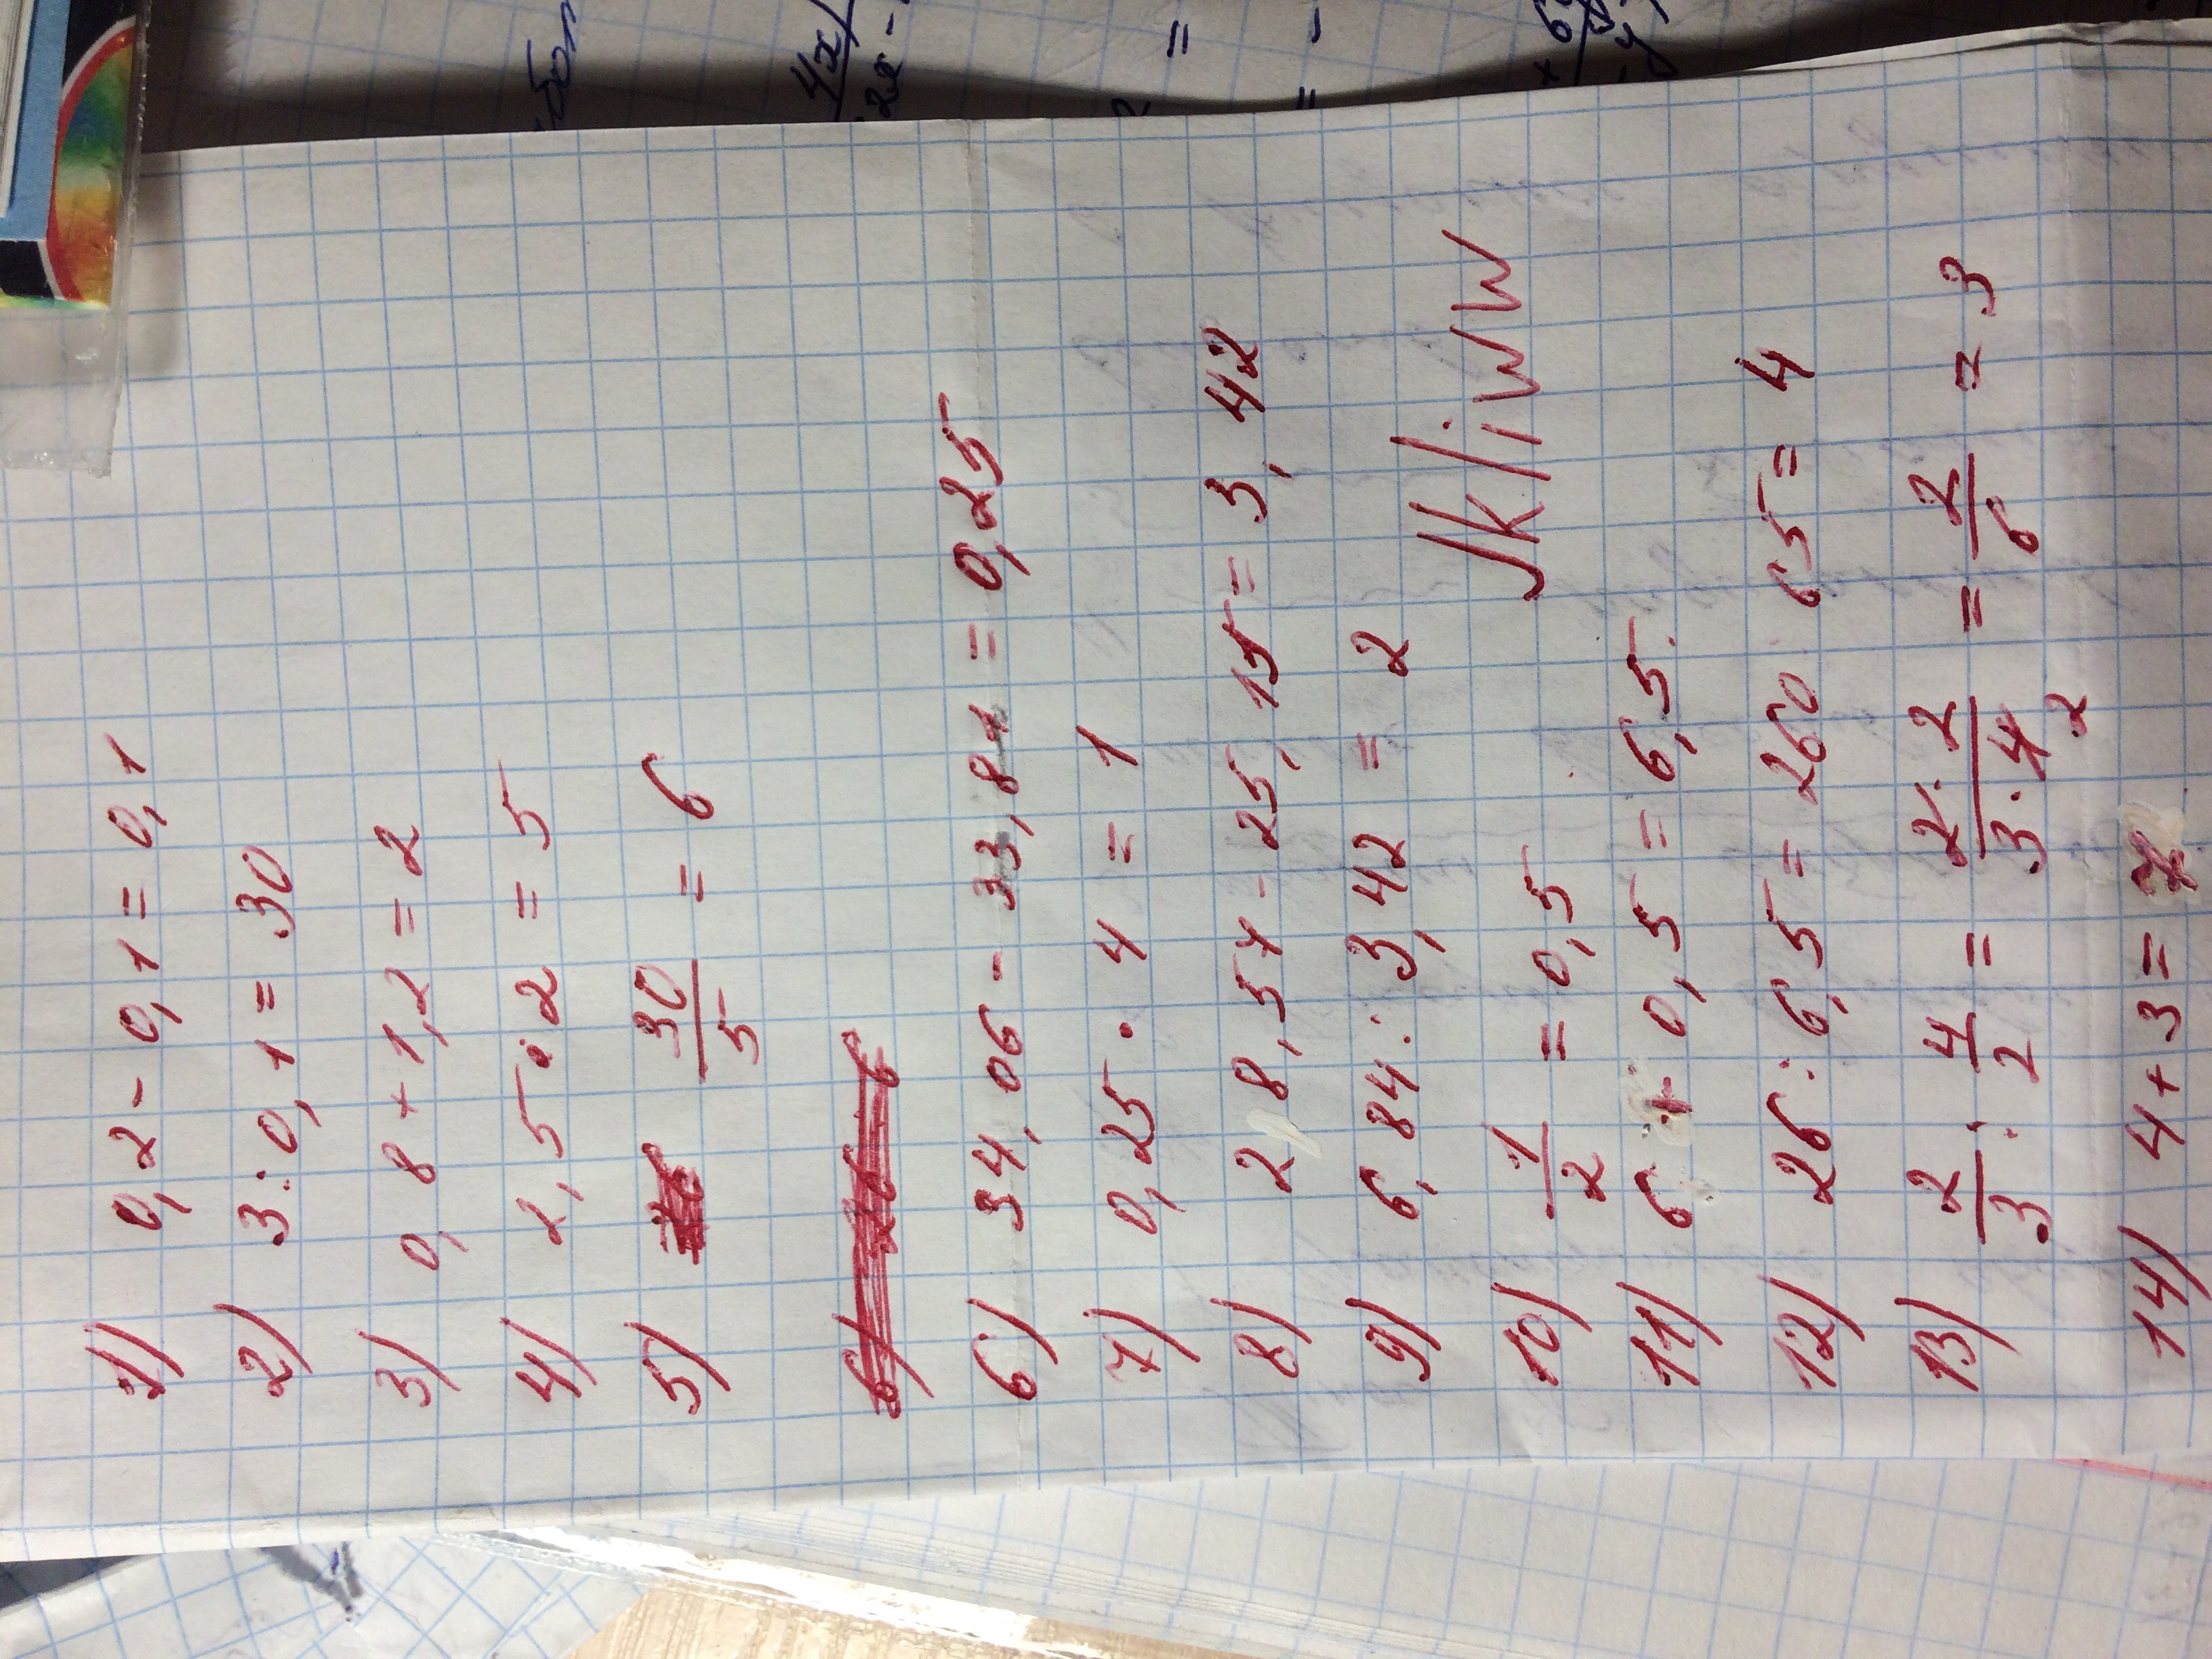 1) 0,2 - 0,1 = 0,1
2) 3 : 0,1 = 30
3) 0,8 + 1,2 = 2
4) 2,5 · 2 = 5
5) 30/5 = 6
6) 34,06 - 33,81 = 0,25
7) 0,25 · 4 = 1
8) 28,57 - 25,15 = 3,42
9) 6,84 : 3,42 = 2
Jkliww
10) 1/2 = 0,5
11) 6 + 0,5 = 6,5
12) 26 : 6,5 = 260 : 65 = 4
13) 2/3 : 4/2 = 2·2/3·4 2 = 2/6 = 3
14) 4 + 3 = 7
4x
2x -
=
2
= -